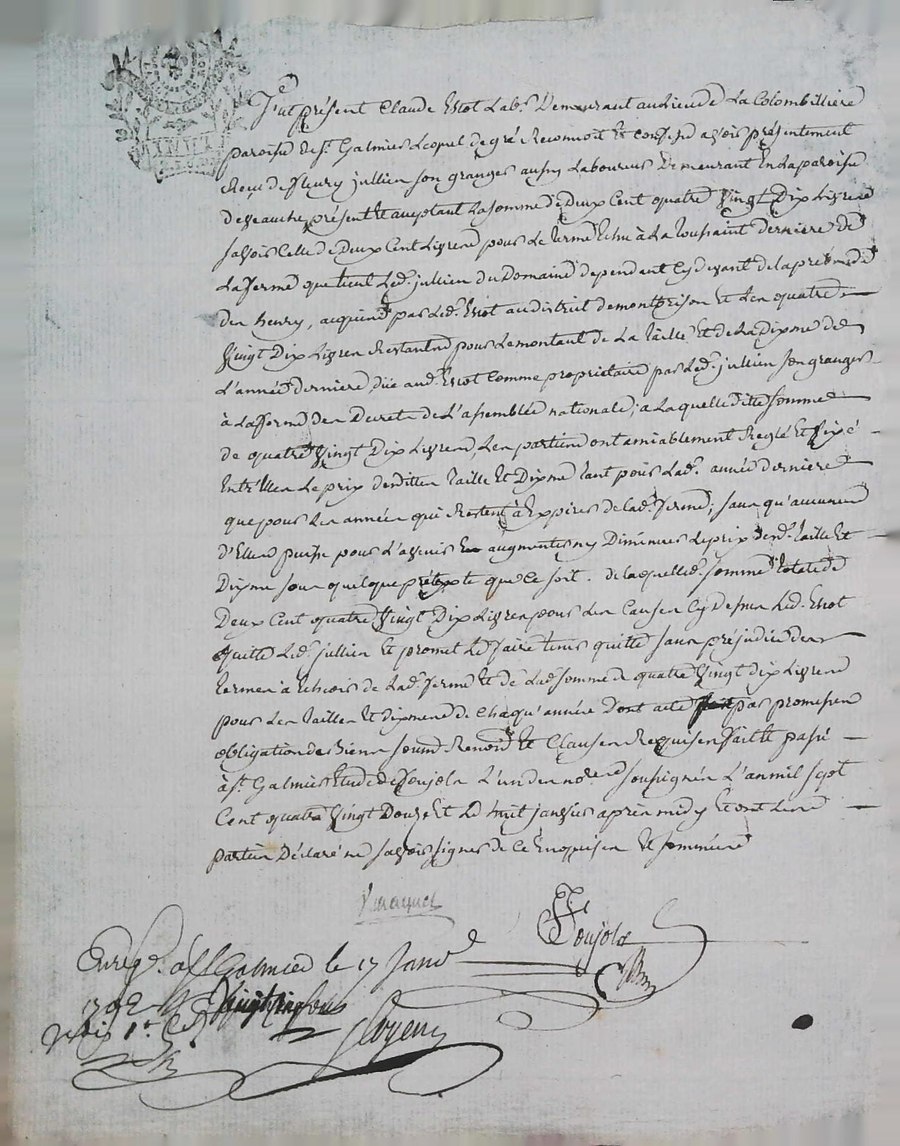 fut présent Claude Viot Lab.r Demeurant au Lieu de La Colombilliere
paroisse de S.t Galmier Lequel de gré Reconnoit Et confesse avoir présentement
Reçu de fleury jullien son granger aussy Laboureur Demeurant En La paroisse
de veauche present Et aceptant La somme de Deux Cent quatre vingt Dix Livres
savoir Celle de Deux Cent Livres pour Le terme Echu à La toussaint derniere de
La ferme que tient Led. jullien du Domaine dépendant Cy devant de la prébende
des henry, acquis par Led. Viot au district de montbrison Et Les quatre
vingt Dix Livres Restantes pour Le montant de La Taille Et de La Dixme de
L'année derniere düe aud. Viot Comme propriétaire par Led. jullien son granger
à La forme des Decrets de L'assemblée nationale, a Laquelle ditte somme
de quatre vingt Dix Livres Les parties ont amiablement Reglé Et fixé
Entr'Elles Le prix desdittes Taille Et Dixme tant pour Lad. année derniere
que pour Les années qui Restent à Expirer de Lad. ferme, sans qu'aucunes
d'Elles puisse pour L'avenir augmenter ny Diminuer Le prix desd. Taille Et
Dixme sous quelque prétexte que Ce soit. de Laquelle somme totale de
Deux Cent quatre vingt Dix Livres pour Les Causes Cy dessus Led. Viot
quitte Led. jullien Et promet Le faire tenir quitte sans préjudice des
termes à Echeoir de Lad. ferme Et de Lad. somme de quatre vingt dix Livres
pour Les Tailles Et dixmes de Chaqu'année Dont acte par promesses
obligation de Biens soumd. Renond. Et Clauses Requises fait Et passé
à S.t Galmier Etude de foujols L'un des no.res soussignés L'an mil sept
Cent quatre vingt Douze Et Le huit janvier apres midy Et ont Les
parties Déclaré ne savoir signer de Ce Enquises Et sommées
foujols
Enreg.é a S.t Galmier le 17 Janv.
1792 R vingt cinq sous